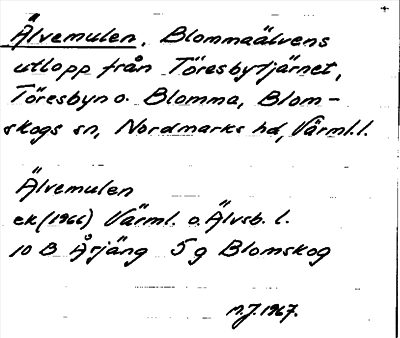 Älvemulen, Blommaälvens
utlopp från Töresbytjärnet,
Töresbyn o. Blomma, Blom-
skogs sn, Nordmarks hd, Värml. l.
Älvemulen
ek (1966) Värml. o. Älvsb. l.
10 B Årjäng 5 g Blomskog
N.J. 1967.